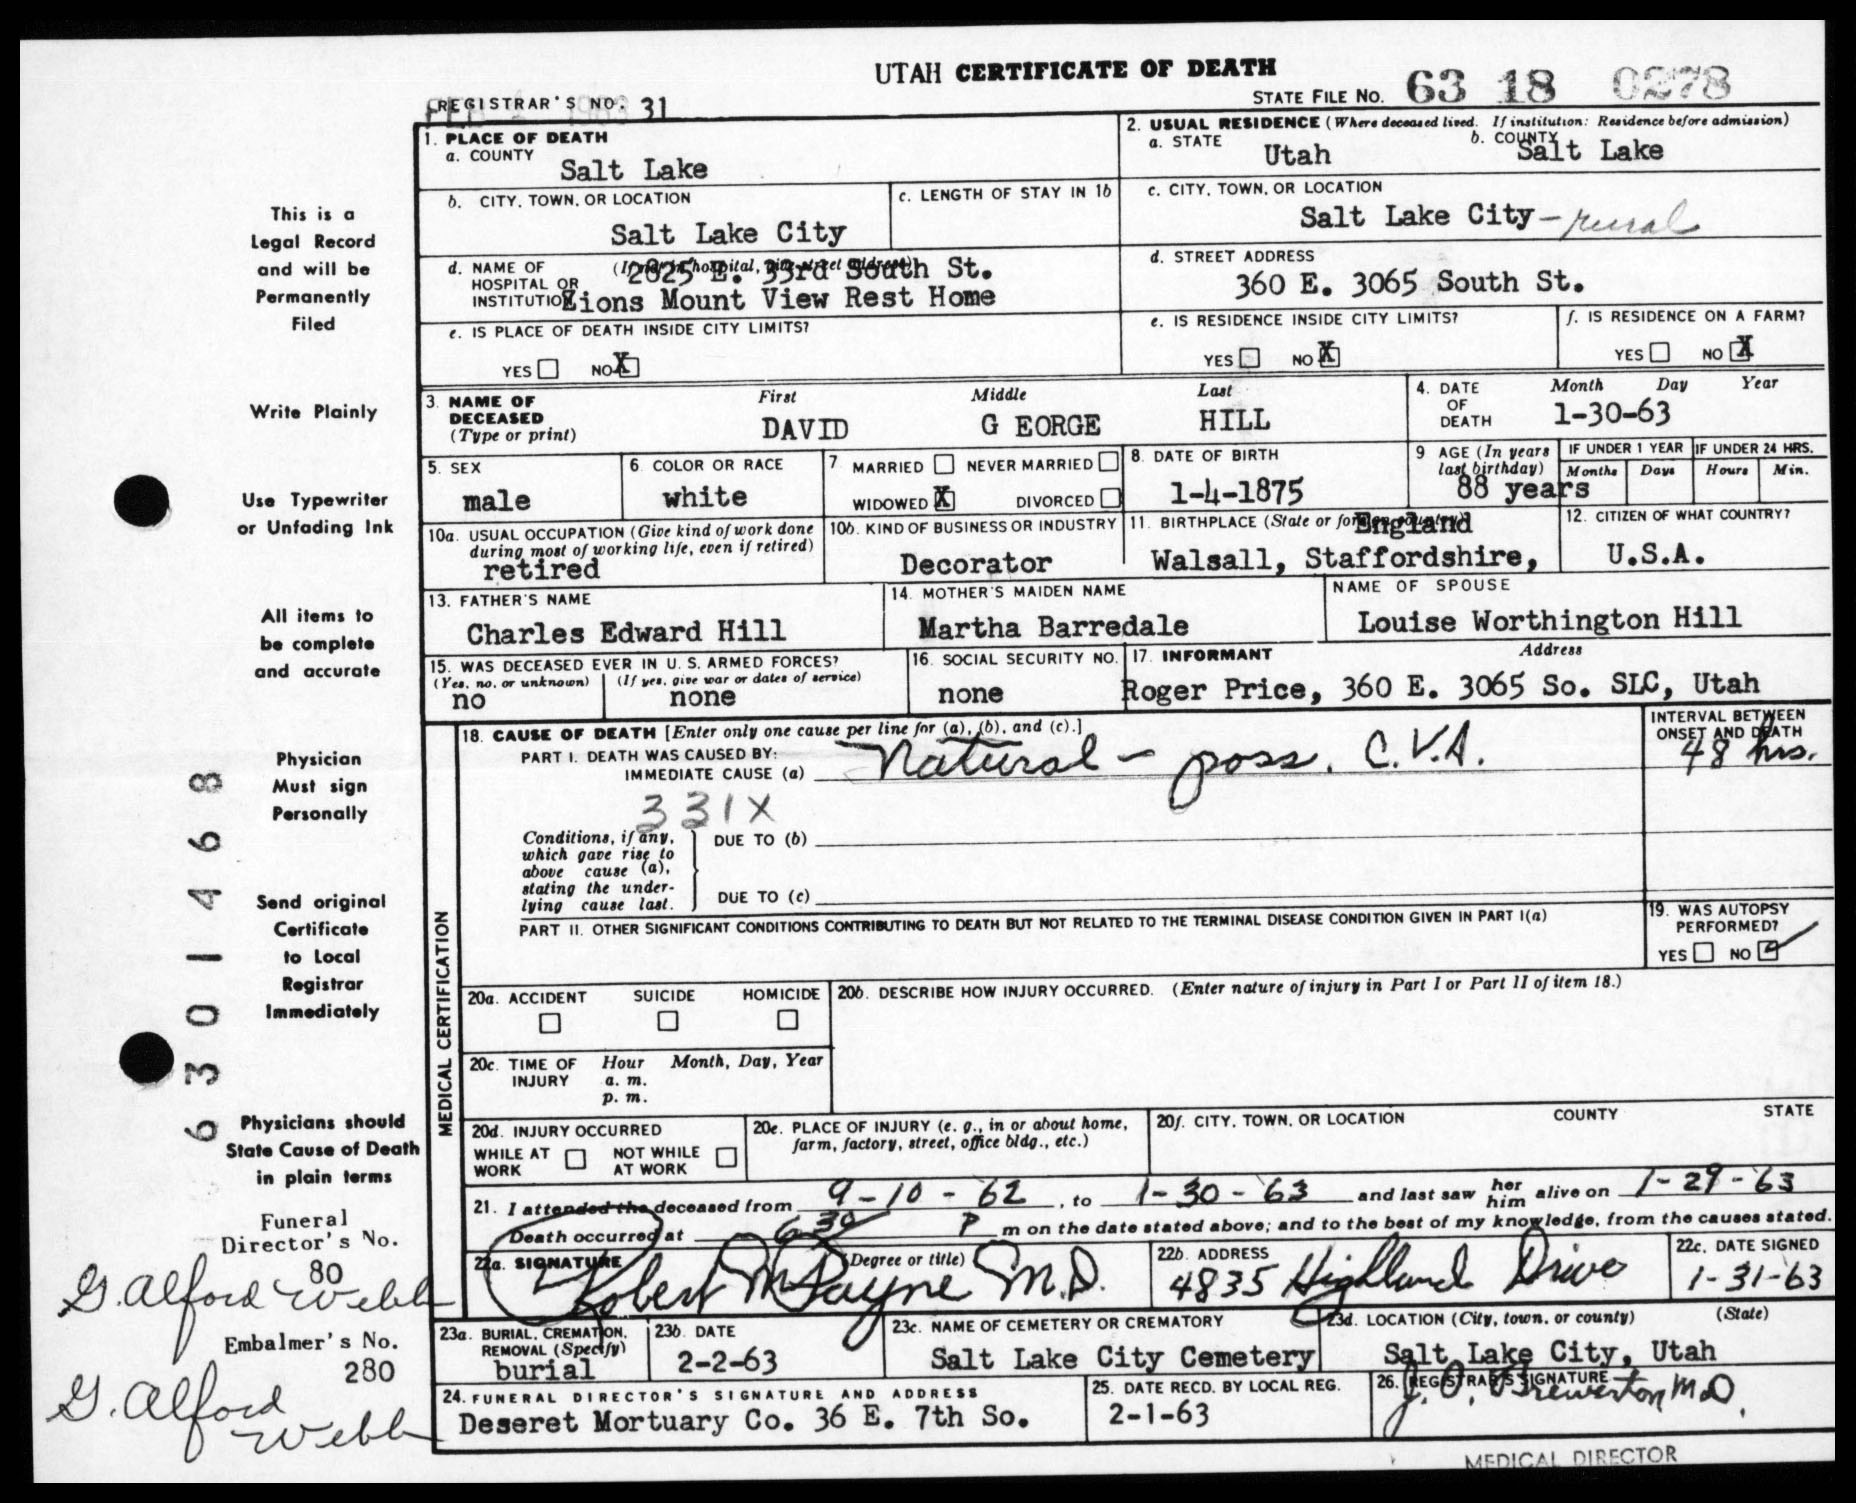 UTAH CERTIFICATE OF DEATH
REGISTRAR'S NO. 31
STATE FILE NO. 63 18 0278
FEB 1963
1. PLACE OF DEATH
a. COUNTY
Salt Lake
2. USUAL RESIDENCE (Where deceased lived. If institution: Residence before admission)
a. STATE Utah b. COUNTY Salt Lake
b. CITY, TOWN, OR LOCATION
Salt Lake City
c. LENGTH OF STAY IN 1b
c. CITY, TOWN, OR LOCATION
Salt Lake City - rural
d. NAME OF HOSPITAL OR INSTITUTION (If not in hospital, give street address)
2825 E. 33rd South St.
Zions Mount View Rest Home
d. STREET ADDRESS
360 E. 3065 South St.
e. IS PLACE OF DEATH INSIDE CITY LIMITS?
YES NO X
e. IS RESIDENCE INSIDE CITY LIMITS?
YES NO X
f. IS RESIDENCE ON A FARM?
YES NO X
3. NAME OF DECEASED (Type or print)
First Middle Last
DAVID G EORGE HILL
4. DATE OF DEATH Month Day Year
1-30-63
5. SEX
male
6 COLOR OR RACE
white
7. MARRIED NEVER MARRIED
WIDOWED X DIVORCED
8. DATE OF BIRTH
1-4-1875
9 AGE (In years last birthday)
88 years
IF UNDER 1 YEAR IF UNDER 24 HRS.
Months Days Hours Min.
10a. USUAL OCCUPATION (Give kind of work done during most of working life, even if retired)
retired
10b. KIND OF BUSINESS OR INDUSTRY
Decorator
11. BIRTHPLACE (State or foreign country)
England
Walsall, Staffordshire,
12. CITIZEN OF WHAT COUNTRY?
U.S.A.
13. FATHER'S NAME
Charles Edward Hill
14. MOTHER'S MAIDEN NAME
Martha Barredale
NAME OF SPOUSE
Louise Worthington Hill
15. WAS DECEASED EVER IN U.S. ARMED FORCES?
(Yes, no, or unknown) (If yes, give war or dates of service)
no none
16. SOCIAL SECURITY NO.
none
17. INFORMANT Address
Roger Price, 360 E. 3065 So. SLC, Utah
MEDICAL CERTIFICATION
18. CAUSE OF DEATH [Enter only one cause per line for (a), (b), and (c).]
PART I. DEATH WAS CAUSED BY:
IMMEDIATE CAUSE (a) Natural - poss. C.V.A.
INTERVAL BETWEEN ONSET AND DEATH
48 hrs.
331X
Conditions, if any, which gave rise to above cause (a), stating the underlying cause last.
DUE TO (b)
DUE TO (c)
PART II. OTHER SIGNIFICANT CONDITIONS CONTRIBUTING TO DEATH BUT NOT RELATED TO THE TERMINAL DISEASE CONDITION GIVEN IN PART I(a)
19. WAS AUTOPSY PERFORMED?
YES NO ✓
20a. ACCIDENT SUICIDE HOMICIDE
20b. DESCRIBE HOW INJURY OCCURRED. (Enter nature of injury in Part I or Part II of item 18.)
20c. TIME OF INJURY Hour Month, Day, Year
a. m.
p. m.
20d. INJURY OCCURRED
WHILE AT WORK NOT WHILE AT WORK
20e. PLACE OF INJURY (e. g., in or about home, farm, factory, street, office bldg., etc.)
20f. CITY, TOWN, OR LOCATION COUNTY STATE
21. I attended the deceased from 9-10-62, to 1-30-63 and last saw her him alive on 1-29-63
Death occurred at 630 P m on the date stated above; and to the best of my knowledge, from the causes stated.
22a. SIGNATURE (Degree or title)
Robert M Payne M.D.
22b. ADDRESS
4835 Highland Drive
22c. DATE SIGNED
1-31-63
23a. BURIAL, CREMATION, REMOVAL (Specify)
burial
23b. DATE
2-2-63
23c. NAME OF CEMETERY OR CREMATORY
Salt Lake City Cemetery
23d. LOCATION (City, town, or county) (State)
Salt Lake City, Utah
24. FUNERAL DIRECTOR'S SIGNATURE AND ADDRESS
Deseret Mortuary Co. 36 E. 7th So.
25. DATE RECD. BY LOCAL REG.
2-1-63
26. REGISTRAR'S SIGNATURE
J. O. Brewerton M.D.
MEDICAL DIRECTOR
This is a
Legal Record
and will be
Permanently
Filed
Write Plainly
Use Typewriter
or Unfading Ink
All items to
be complete
and accurate
Physician
Must sign
Personally
Send original
Certificate
to Local
Registrar
Immediately
Physicians should
State Cause of Death
in plain terms
Funeral
Director's No.
80
G. Alford Webb
Embalmer's No.
280
G. Alford
Webb
6301468